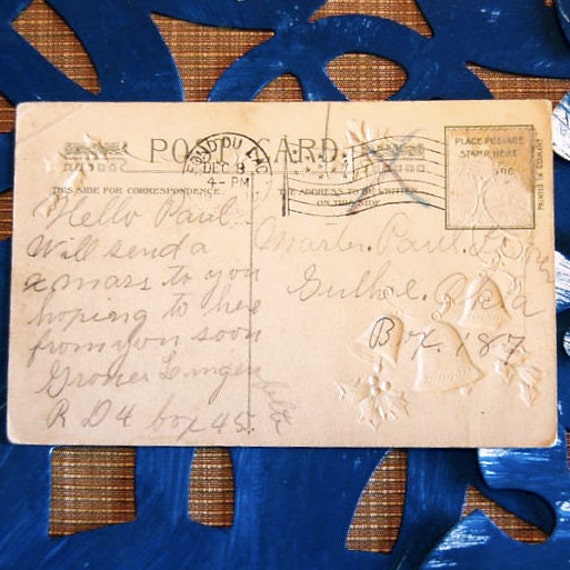 POST CARD
FOND DU LAC
DEC 8
4-PM
PLACE POSTAGE
STAMP HERE
PRINTED IN GERMANY
THIS SIDE FOR CORRESPONDENCE
THE ADDRESS TO BE WRITTEN
ON THIS SIDE
Hello Paul
Will send a
xmass to you
hoping to hee
from you soon
Grover
R D 4 box 45
Master. Paul.
Okla
Box. 187